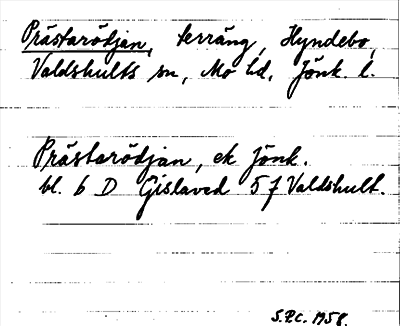 Prästarödjan, terräng, Hyndebo,
Valdshults sn, Mo hd, Jönk. l.
Prästarödjan, ek Jönk.
bl. 6 D Gislaved 5 f Valdshult.
S.P.C. 1958.